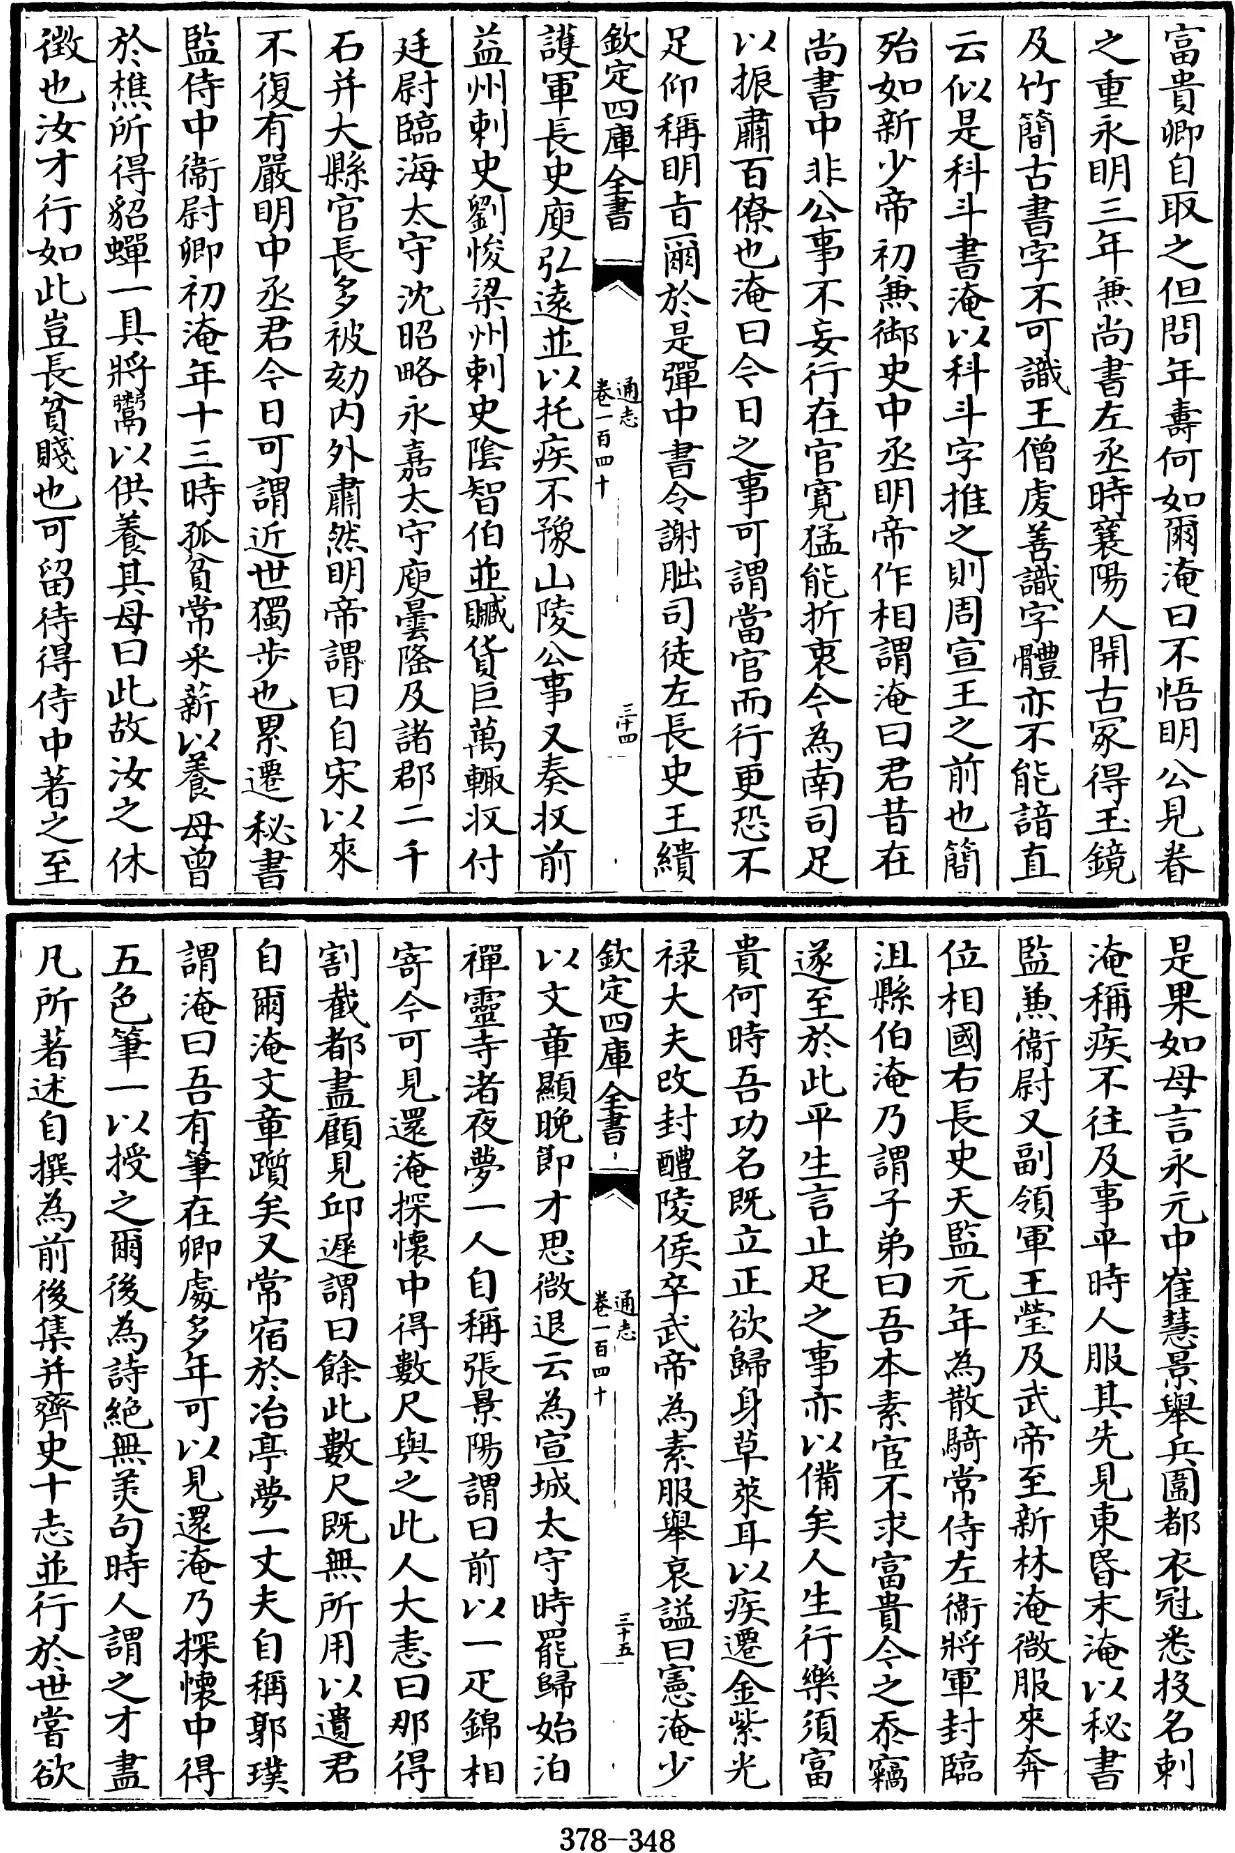 富貴卿自取之但問年壽何如爾淹曰不悟明公見眷
之重永明三年兼尚書左丞時襄陽人開古冢得玉鏡
及竹簡古書字不可識王僧虔善識字體亦不能諳直
云似是科斗書淹以科斗字推之則周宣王之前也簡
殆如新少帝初兼御史中丞明帝作相謂淹曰君昔在
尚書中非公事不妄行在官寛猛能折衷今為南司足
以振肅百僚也淹曰今日之事可謂當官而行更恐不
足仰稱明㫖爾於是彈中書令謝朏司徒左長史王繢
欽定四庫全書
通志
卷一百四十
三十四
護軍長史庾弘逺並以托疾不豫山陵公事又奏收前
益州刺史劉悛梁州刺史陰智伯並贓貨巨萬輙收付
廷尉臨海太守沈昭略永嘉太守庾曇隆及諸郡二千
石并大縣官長多被劾内外肅然明帝謂曰自宋以來
不復有嚴明中丞君今日可謂近世獨步也累遷秘書
監侍中衞尉卿初淹年十三時孤貧常采薪以養母曾
於樵所得貂蟬一具將鬻以供養其母曰此故汝之休
徴也汝才行如此豈長貧賤也可留待得侍中著之至
是果如母言永元中崔慧景舉兵圍都衣冠悉投名刺
淹稱疾不往及事平時人服其先見東昏末淹以秘書
監兼衞尉又副領軍王瑩及武帝至新林淹微服來奔
位相國右長史天監元年為散騎常侍左衞將軍封臨
沮縣伯淹乃謂子弟曰吾本素宦不求富貴今之忝竊
遂至於此平生言止足之事亦以備矣人生行樂須富
貴何時吾功名既立正欲歸身草萊耳以疾遷金紫光
禄大夫改封醴陵侯卒武帝為素服舉哀諡曰憲淹少
欽定四庫全書
通志
卷一百四十
三十五
以文章顯晩節才思微退云為宣城太守時罷歸始泊
禪靈寺渚夜夢一人自稱張景陽謂曰前以一疋錦相
寄今可見還淹探懷中得數尺與之此人大恚曰那得
割截都盡顧見邱遲謂曰餘此數尺既無所用以遺君
自爾淹文章躓矣又常宿於冶亭夢一丈夫自稱郭璞
謂淹曰吾有筆在卿處多年可以見還淹乃探懷中得
五色筆一以授之爾後為詩絶無美句時人謂之才盡
凡所著述自撰為前後集并齊史十志並行於世嘗欲
378-348